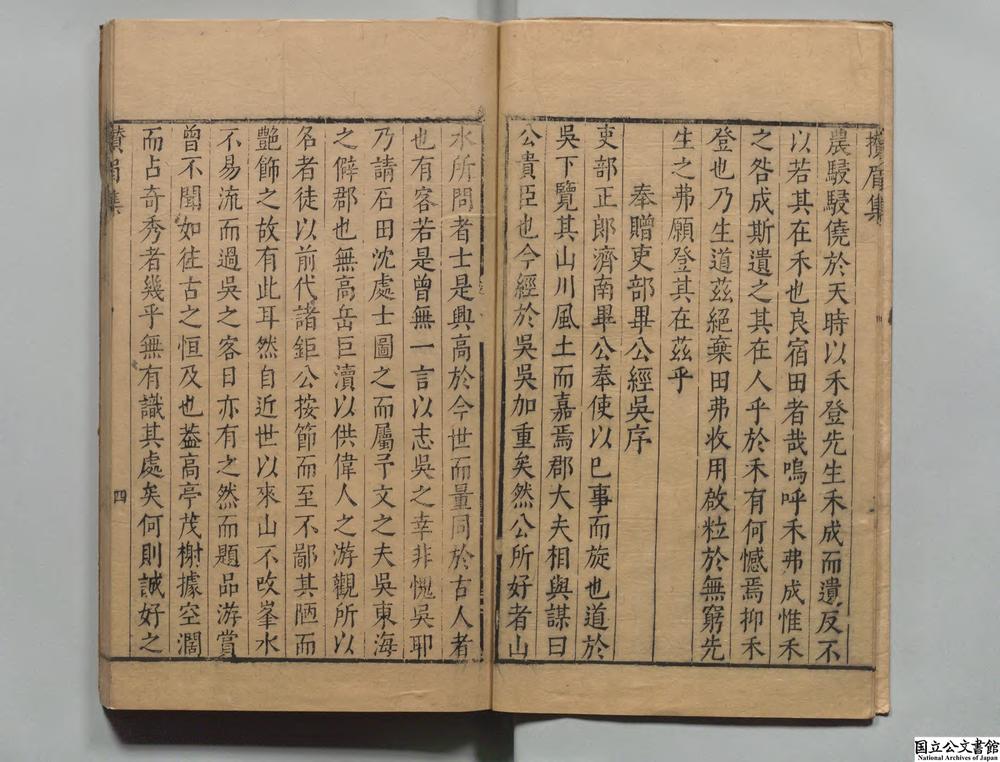 農駸駸僥於天時以禾登先生禾成而遺反不
以若其在禾也良宿田者哉嗚呼禾弗成惟禾
之咎成斯遺之其在人乎於禾有何憾焉抑禾
登也乃生道茲絕棄田弗收用啟粒於無窮先
生之弗願登其在茲乎
奉贈吏部畢公經吳序
吏部正郎濟南畢公奉使以巳事而旋也道於
吳下覽其山川風土而嘉焉郡大夫相與謀曰
公貴臣也今經於吳吳加重矣然公所好者山
水所問者士是興高於今世而量同於古人者
也有客若是曾無一言以志吳之幸非愧吳耶
乃請石田沈處士圖之而屬予文之夫吳東海
之僻郡也無高岳巨瀆以供偉人之游觀所以
名者徒以前代諸鉅公按節而至不鄙其陋而
艷飾之故有此耳然自近世以來山不改峯水
不易流而過吳之客日亦有之然而題品游賞
曾不聞如徃古之恒及也葢高亭茂榭據空濶
而占奇秀者幾乎無有識其處矣何則誠好之
四
国立公文書館
National Archives of Japan